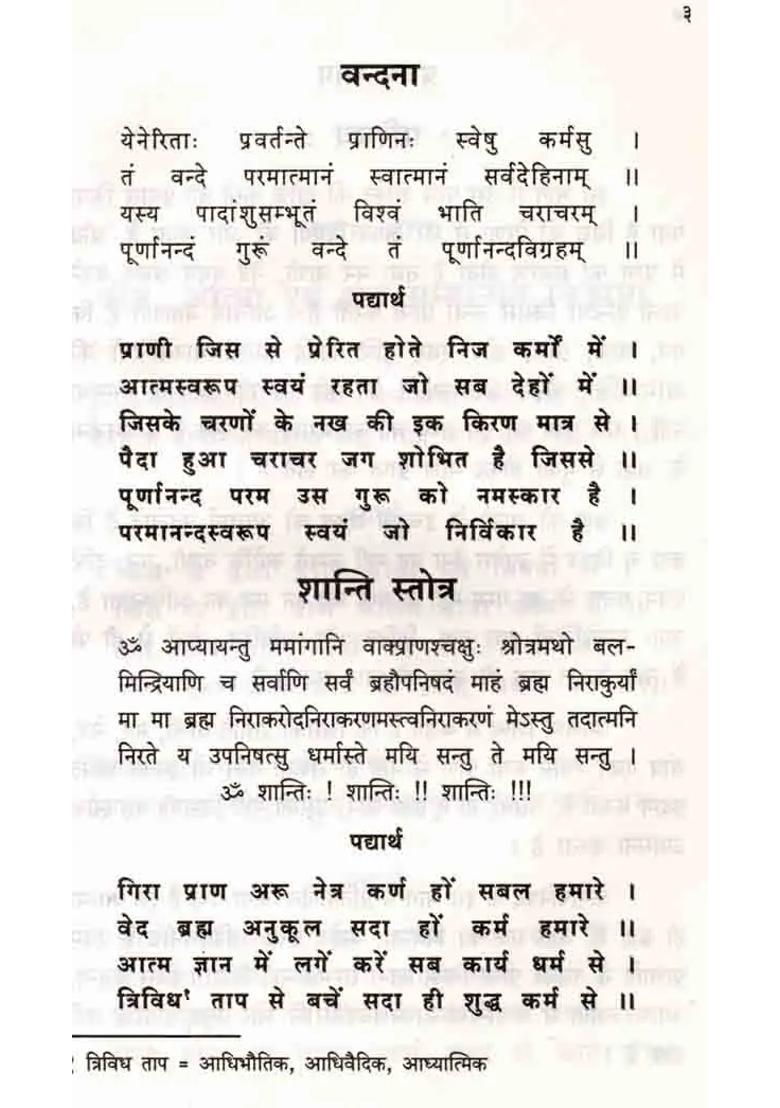 ३
वन्दना
येनेरिताः प्रवर्तन्ते प्राणिनः स्वेषु कर्मसु ।
तं वन्दे परमात्मानं स्वात्मानं सर्वदेहिनाम् ॥
यस्य पादांशुसम्भूतं विश्वं भाति चराचरम् ।
पूर्णानन्दं गुरूं वन्दे तं पूर्णानन्दविग्रहम् ॥
पद्यार्थ
प्राणी जिस से प्रेरित होते निज कर्मों में ।
आत्मस्वरूप स्वयं रहता जो सब देहों में ॥
जिसके चरणों के नख की इक किरण मात्र से ।
पैदा हुआ चराचर जग शोभित है जिससे ॥
पूर्णानन्द परम उस गुरू को नमस्कार है ।
परमानन्दस्वरूप स्वयं जो निर्विकार है ॥
शान्ति स्तोत्र
ॐ आप्यायन्तु ममांगानि वाक्प्राणश्चक्षुः श्रोत्रमथो बल-
मिन्द्रियाणि च सर्वाणि सर्वं ब्रहौपनिषदं माहं ब्रह्म निराकुर्यां
मा मा ब्रह्म निराकरोदनिराकरणमस्त्वनिराकरणं मेऽस्तु तदात्मनि
निरते य उपनिषत्सु धर्मास्ते मयि सन्तु ते मयि सन्तु ।
ॐ शान्तिः ! शान्तिः !! शान्तिः !!!
पद्यार्थ
गिरा प्राण अरू नेत्र कर्ण हों सबल हमारे ।
वेद ब्रह्म अनुकूल सदा हों कर्म हमारे ॥
आत्म ज्ञान में लगें करें सब कार्य धर्म से ।
त्रिविध¹ ताप से बचें सदा ही शुद्ध कर्म से ॥
त्रिविध ताप = आधिभौतिक, आधिवैदिक, आध्यात्मिक